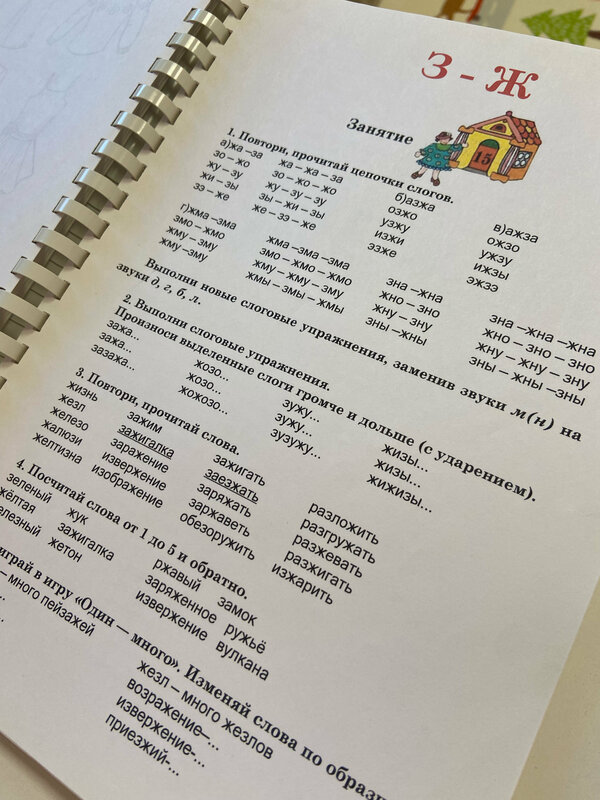 З - Ж
Занятие 15
1. Повтори, прочитай цепочки слогов.
а)жа –за жа – жа – за б)азжа в)ажза
зо – жо зо – жо – жо озжо ожзо
жу – зу жу – зу – зу узжу ужзу
жи – зы зы – жи – зы изжи ижзы
зэ – же же – зэ – же эзже эжзэ
г)жма –зма жма –зма –зма зна –жна зна – жна –жна
змо – жмо змо – жмо – жмо жно – зно жно – зно – зно
жму – зму жму – жму – зму жну – зну жну – жну – зну
жму – зму жмы – змы – жмы зны –жны зны – жны –зны
Выполни новые слоговые упражнения, заменив звуки м(н) на
звуки д, г, б, л.
2. Выполни слоговые упражнения.
Произноси выделенные слоги громче и дольше (с ударением).
зажа... жозо... зужу... жизы...
зажа... жозо... зужу... жизы...
зазажа... жожозо... зузужу... жижизы...
3. Повтори, прочитай слова.
жизнь зажим зажигать разложить
жезл зажигалка заезжать разгружать
железо заражение заряжать разжевать
жалюзи извержение заржаветь разжигать
желтизна изображение обезоружить изжарить
4. Посчитай слова от 1 до 5 и обратно.
зеленый жук ржавый замок
жёлтая зажигалка заряженное ружьё
елезный жетон извержение вулкана
играй в игру «Один — много». Изменяй слова по образц
– много пейзажей жезл – много жезлов
... возражение–...
... извержение-...
приезжий-...